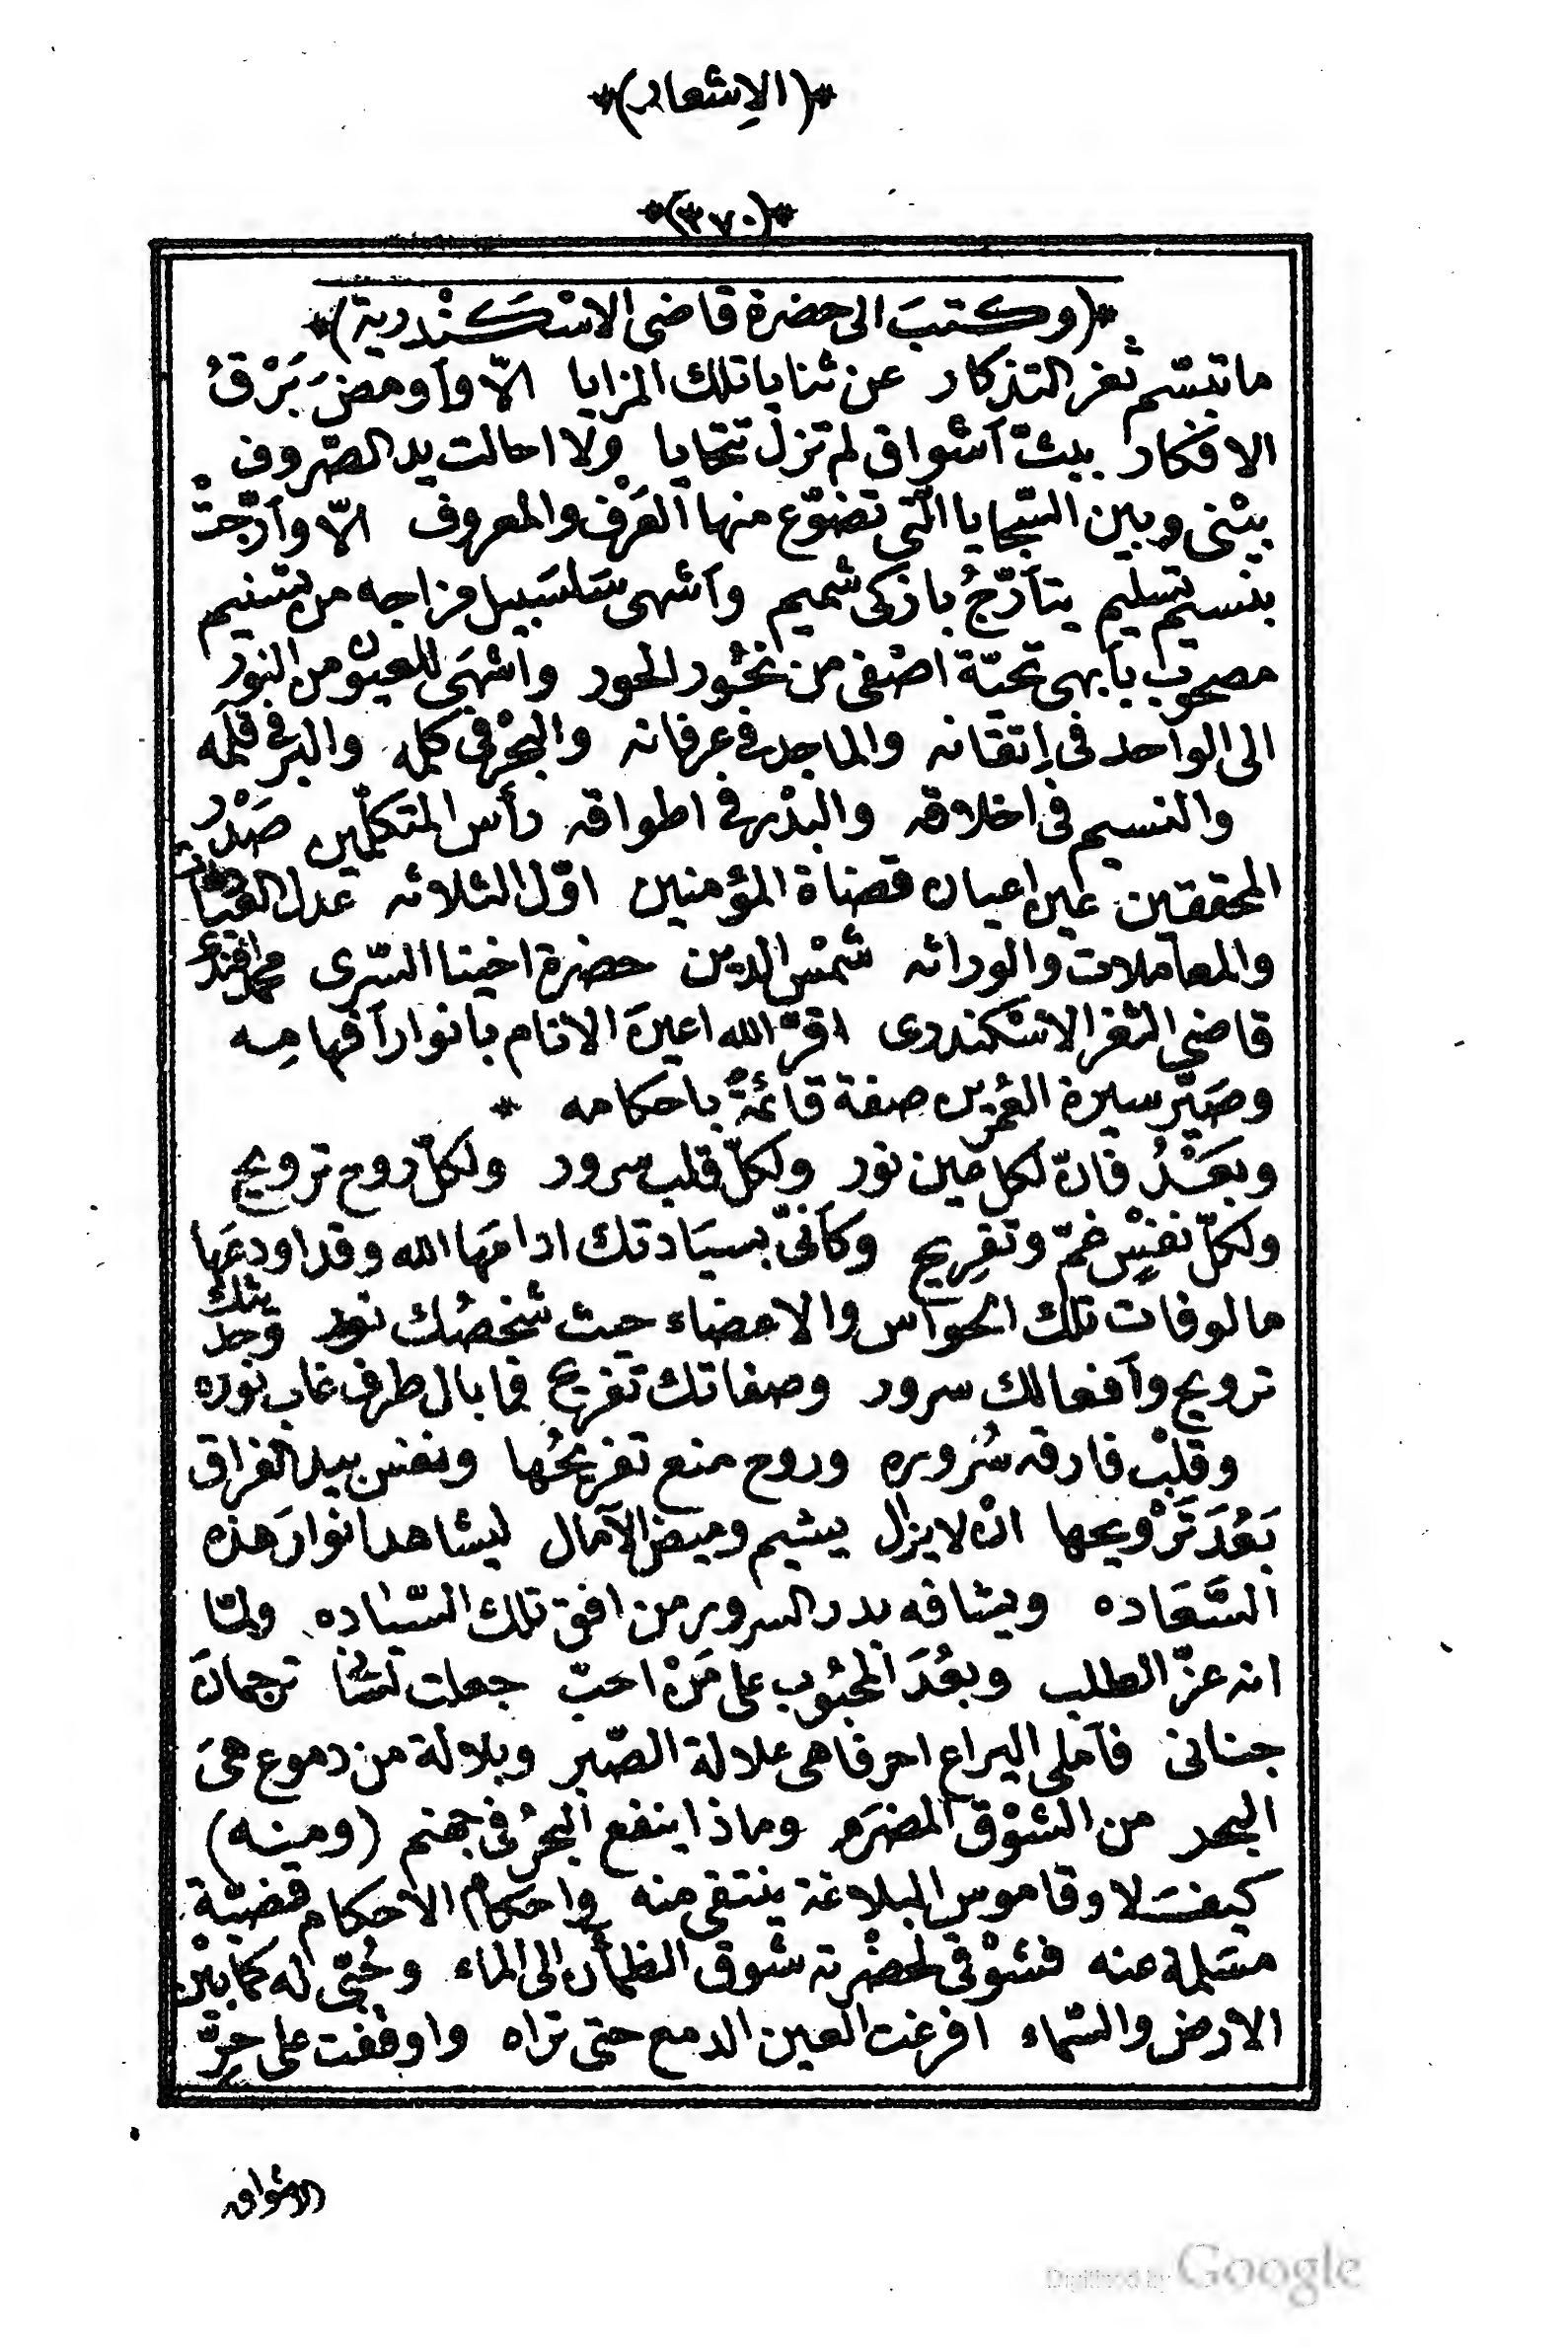 *(الإشعار)*
*(٣٧٠)*
*(وكتبَ الى حضرة قاضى الاسْكَنْدرية)*
ما تبسّم ثغر التذكار عن ثنايا تلك المزايا الاّ وآومضَ بَرْقُ
الافكار ببثّ آشواق لم تزل تتحايا ولا احالت يد الصّروف
بيْنى وبين السّجايا الّتى تضوّع منها العَرْف والمعروف الاّ وآرّجتْ
بنسيم تسليم يتآرّجُ باذكى شميم وآشهى سَلسَبيل مزاجه من تسنيم
مصحوب بآبهى تحيّة اصْفى من نحُور الحور واشهَى للعيون من النور
الى الواحد فى اِتقانه والماجد فى عرفانه والبحْر فى كلمه والبر فى قلمه
والنسيم فى اخلاقه والبدْر فى اطواقه رأس المتكلّمين صَدْر
المحققين عين اعيان قضاة المؤمنين اوّل الثلاثه عدل
والمعاملات والوراثه شمْس الدين حضرة اخينا السّرى محمد افندى
قاضى الثغر الاسْكندرى اقرّ الله اعين الانام بانوار آفهامِه
وصَيّر سيرة العُمَرين صفة قآئمةً باحكامه *
وبعَدُ فانّ لكل عين نور ولكلّ قلب سرور ولكلّ روح ترويح
ولكلّ نفسٍ غمّ وتفريح وكآنّى بسيَادتك ادامَها الله وقد اودعَها
مالوفات تلك الحوآس والاعضاء حيث شخصُك نور وحديثك
ترويح وآفعالك سرور وصفاتك تفريح فما بال طرف غاب نوره
وقلبْ فارقه سُروره وروح منع تفريحُها ونفس بيد الفراق
بَعُدَ تَرْويحها ان لا يزال يشيم وميض الآمال ليشاهد انوارَ هذه
السَّعَاده ويشافه بدر السرور من افق تلك السّياده ولمّا
انه عزّ الطلب وبعُدَ المحبُوب على مَنْ احبّ جعلت لسانى ترجمانَ
جنانى فآملى اليراع احرفا هى علالة الصّبر وبلالة من دموع هىَ
البحر من الشوْق المضرَم وماذا ينفع البحرُ فى جهنم (ومينه)
كيفَ لا وقاموس البلاغة ينتقى منه واحكام الاحكام قضيّة
مسَلمة عنه فشوْقى لحضْرته شوق الظمآن الى المآء وحُبّى له كما بيْن
الارض والسّمآء افرغت العين الدمع حتى تراه واوقفت على حرّ
الاشواق